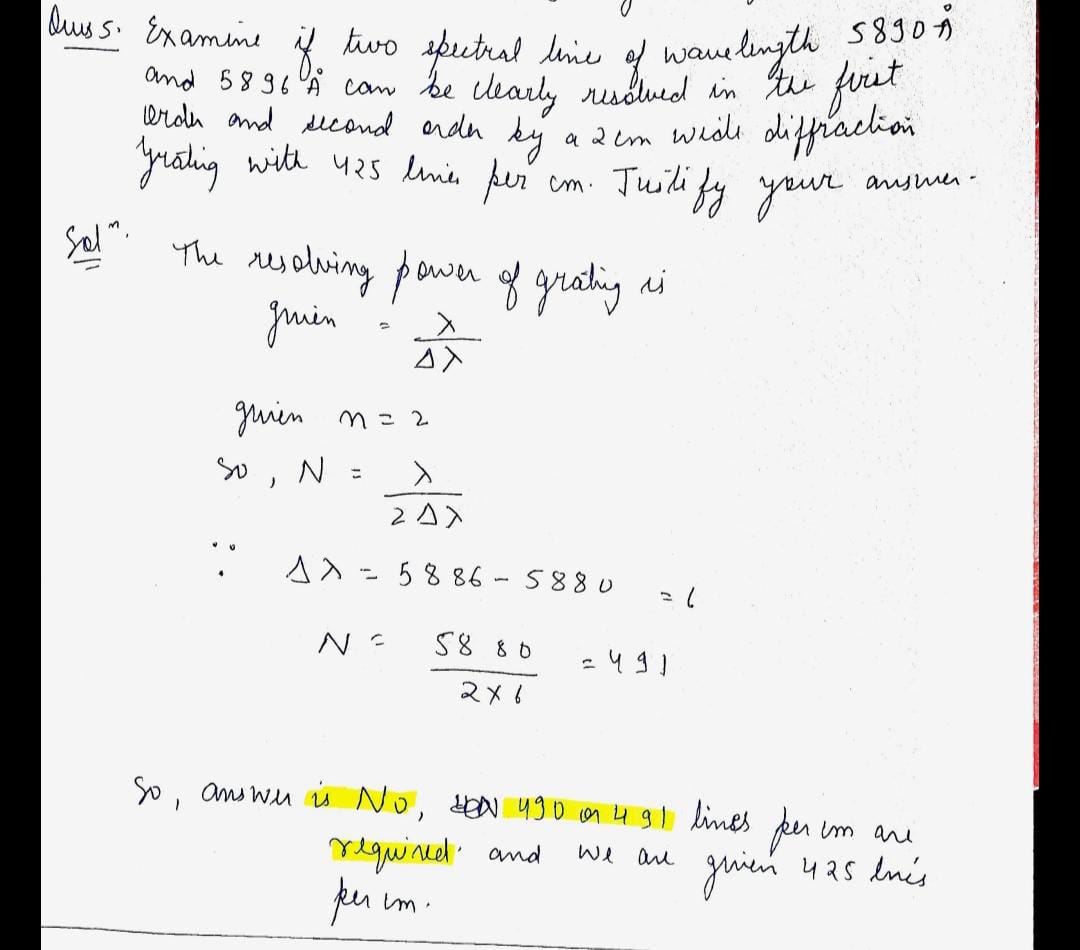 Ques 5. Examine if two spectral line of wavelength 5890 Å
and 5896 Å can be clearly resolved in the first
order and second order by a 2 cm wide diffraction
grating with 425 lines per cm. Justify your answer.
Solⁿ. The resolving power of grating is
given = λ/Δλ
given n = 2
so, N = λ/2Δλ
∵ Δλ = 5886 - 5880 = 6
N = 5880/2×6 = 491
So, answer is No, 490 or 491 lines per cm are
required. and we are given 425 lines
per cm.